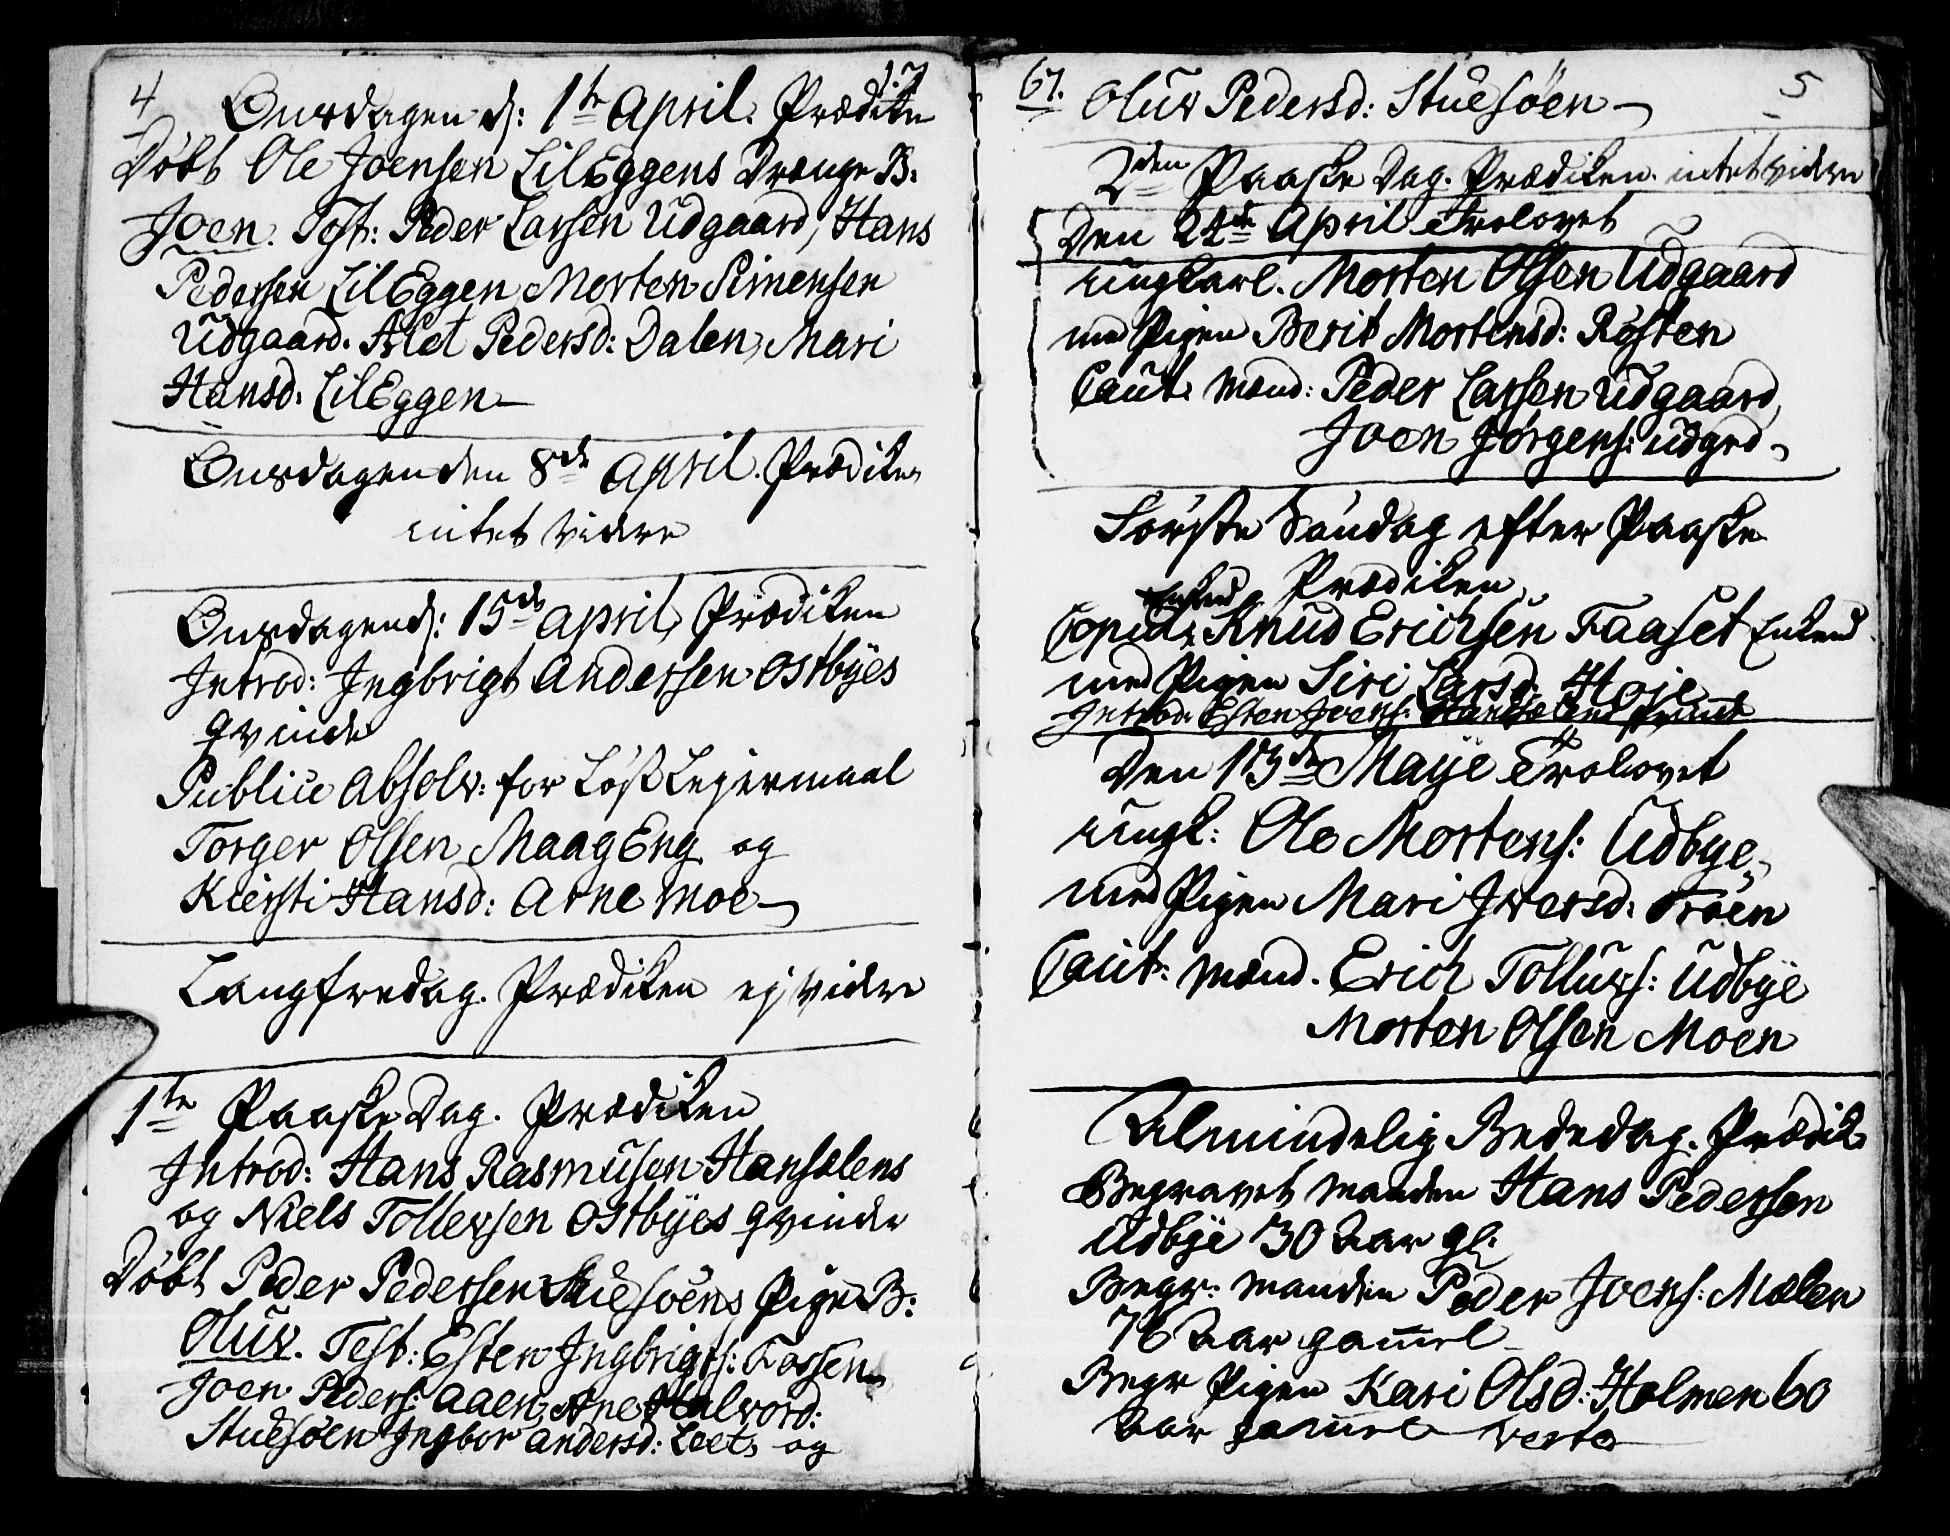 4 17
Onsdagen d: 1te April. Prædiken
Døbt Ole Joensen LilEggens Drænge B:
Joen. Test: Peder Larsen Udgaard, Hans
Pedersen LilEggen Morten Simensen
Udgaard. Aslet Pedersd: Dalen, Mari
Hansd. LilEggen
Onsdagen den 8de April. Prædiken
intet videre
Onsdagen d: 15de April, Prædiken
Introd: Ingbrigt Anderssen Ostbyes
Qvinde
Publice Absolv: for Løst Lejermaal
Torger Olsen MaagEng og
Kiersti Hansd: Arne moe
Langfredag. Prædiken ej videre
1te Paaske Dag. Prædiken
Introd: Hans Rasmusen Hansælens
og Niels Tollefsen Ostbyes Qvinder
Døbt Peder Pedersen Stuesøens Pige B:
Oluf. Test: Esten Ingbrigts: Fossen
Joen Peders: Aaen, Ane Halvord:
Stuesøen Ingbor Andersd: Leet, og
67. 5
Oluf Pedersd: Stuesøen
2den Paaske Dag. Prædiken. intet videre
Den 24de April Trolovet
ungkarl. Morten Olsen Udgaard
med Pigen Berit Mortensd: Røsten
Caut. Mænd: Peder Larsen Udgaard,
Joen Jørgens: Udgrd
Første Søndag efter Paaske
Prædiken
Copul. Knud Erichsen Faaset Enkemd
med Pigen Siri Larsd: Høje
Introd. Esten Joens:
Den 13de Maye Trolovet
ungk: Ole Mortens: Udbye
med Pigen Mari Iversd: Trøen
Caut: Mænd. Erich Tollufs: Udbye
Morten Olsen Moen
Almindelig Bededag. Prædik
Begravet Manden Hans Pedersen
Udbye 30 Aar gl.
Begr: Manden Peder Joens: Mælen
76 Aar gamel
Begr Pigen Kari Olsd: Holmen 60
Aar gamel verte